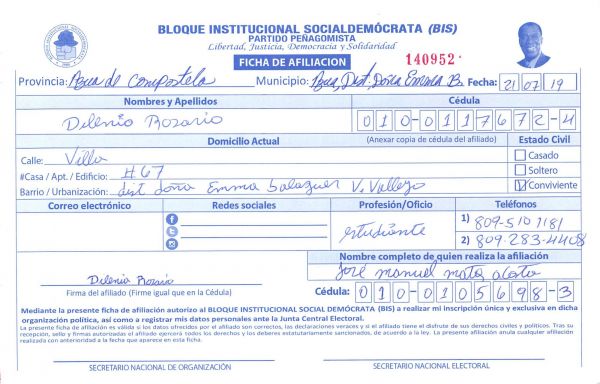 BLOQUE INSTITUCIONAL SOCIALDEMÓCRATA (BIS)
PARTIDO PEÑAGOMISTA
Libertad, Justicia, Democracia y Solidaridad
FICHA DE AFILIACION
140952
Provincia: Azua de Compostela Municipio: Azua, Dist. Doña Emma B. Fecha: 21 07 19
Nombres y Apellidos Cédula
Dilenio Rosario 010-0117672-4
Domicilio Actual (Anexar copia de cédula del afiliado) Estado Civil
Calle: Villa Casado
#Casa / Apt. / Edificio: #67 Soltero
Barrio / Urbanización: dist doña Emma balaguer V. Vallejo Conviviente
Correo electrónico Redes sociales Profesión/Oficio Teléfonos
estudiante
1) 809-510 1181
2) 809-283-4408
Nombre completo de quien realiza la afiliación
José manuel mata acosta
Dilenio Rosario
Firma del afiliado (Firme igual que en la Cédula) Cédula: 010-0105698-3
Mediante la presente ficha de afiliación autorizo al BLOQUE INSTITUCIONAL SOCIAL DEMÓCRATA (BIS) a realizar mi inscripción única y exclusiva en dicha
organización política, así como a registrar mis datos personales ante la Junta Central Electoral.
La presente ficha de afiliación es válida si los datos ofrecidos por el afiliado son correctos, las declaraciones veraces y si el afiliado tiene el disfrute de sus derechos civiles y políticos. Tras su
recepción, sello y firmas autorizadas el afiliado ejercerá todos los derechos y los deberes estatutariamente sancionados, de acuerdo a la ley. La presente afiliación anula cualquier afiliación
realizada con anterioridad a la fecha que aparece en esta ficha.
SECRETARIO NACIONAL DE ORGANIZACIÓN SECRETARIO NACIONAL ELECTORAL